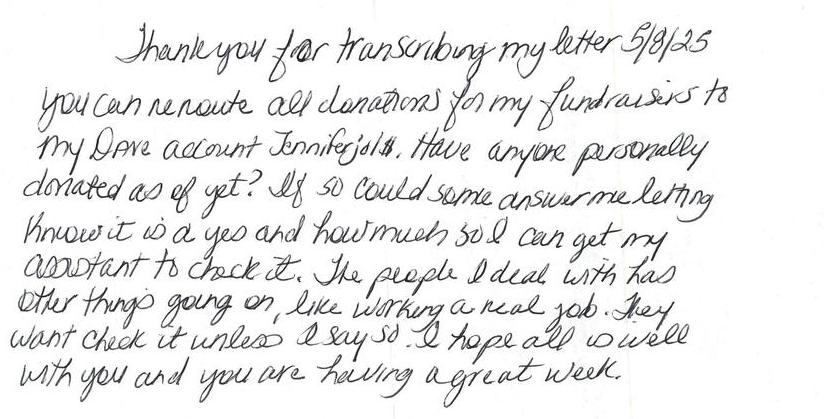 Thank you for transcribing my letter 5/8/25
you can reroute all donations for my fundraisers to
my Dave account Jenniferjol$. Have anyone personally
donated as of yet? If so could some answer me letting
know it is a yes and how much so I can get my
assistant to check it. The people I deal with has
other things going on, like working a real job. They
want check it unless I say so. I hope all is well
with you and you are having a great week.